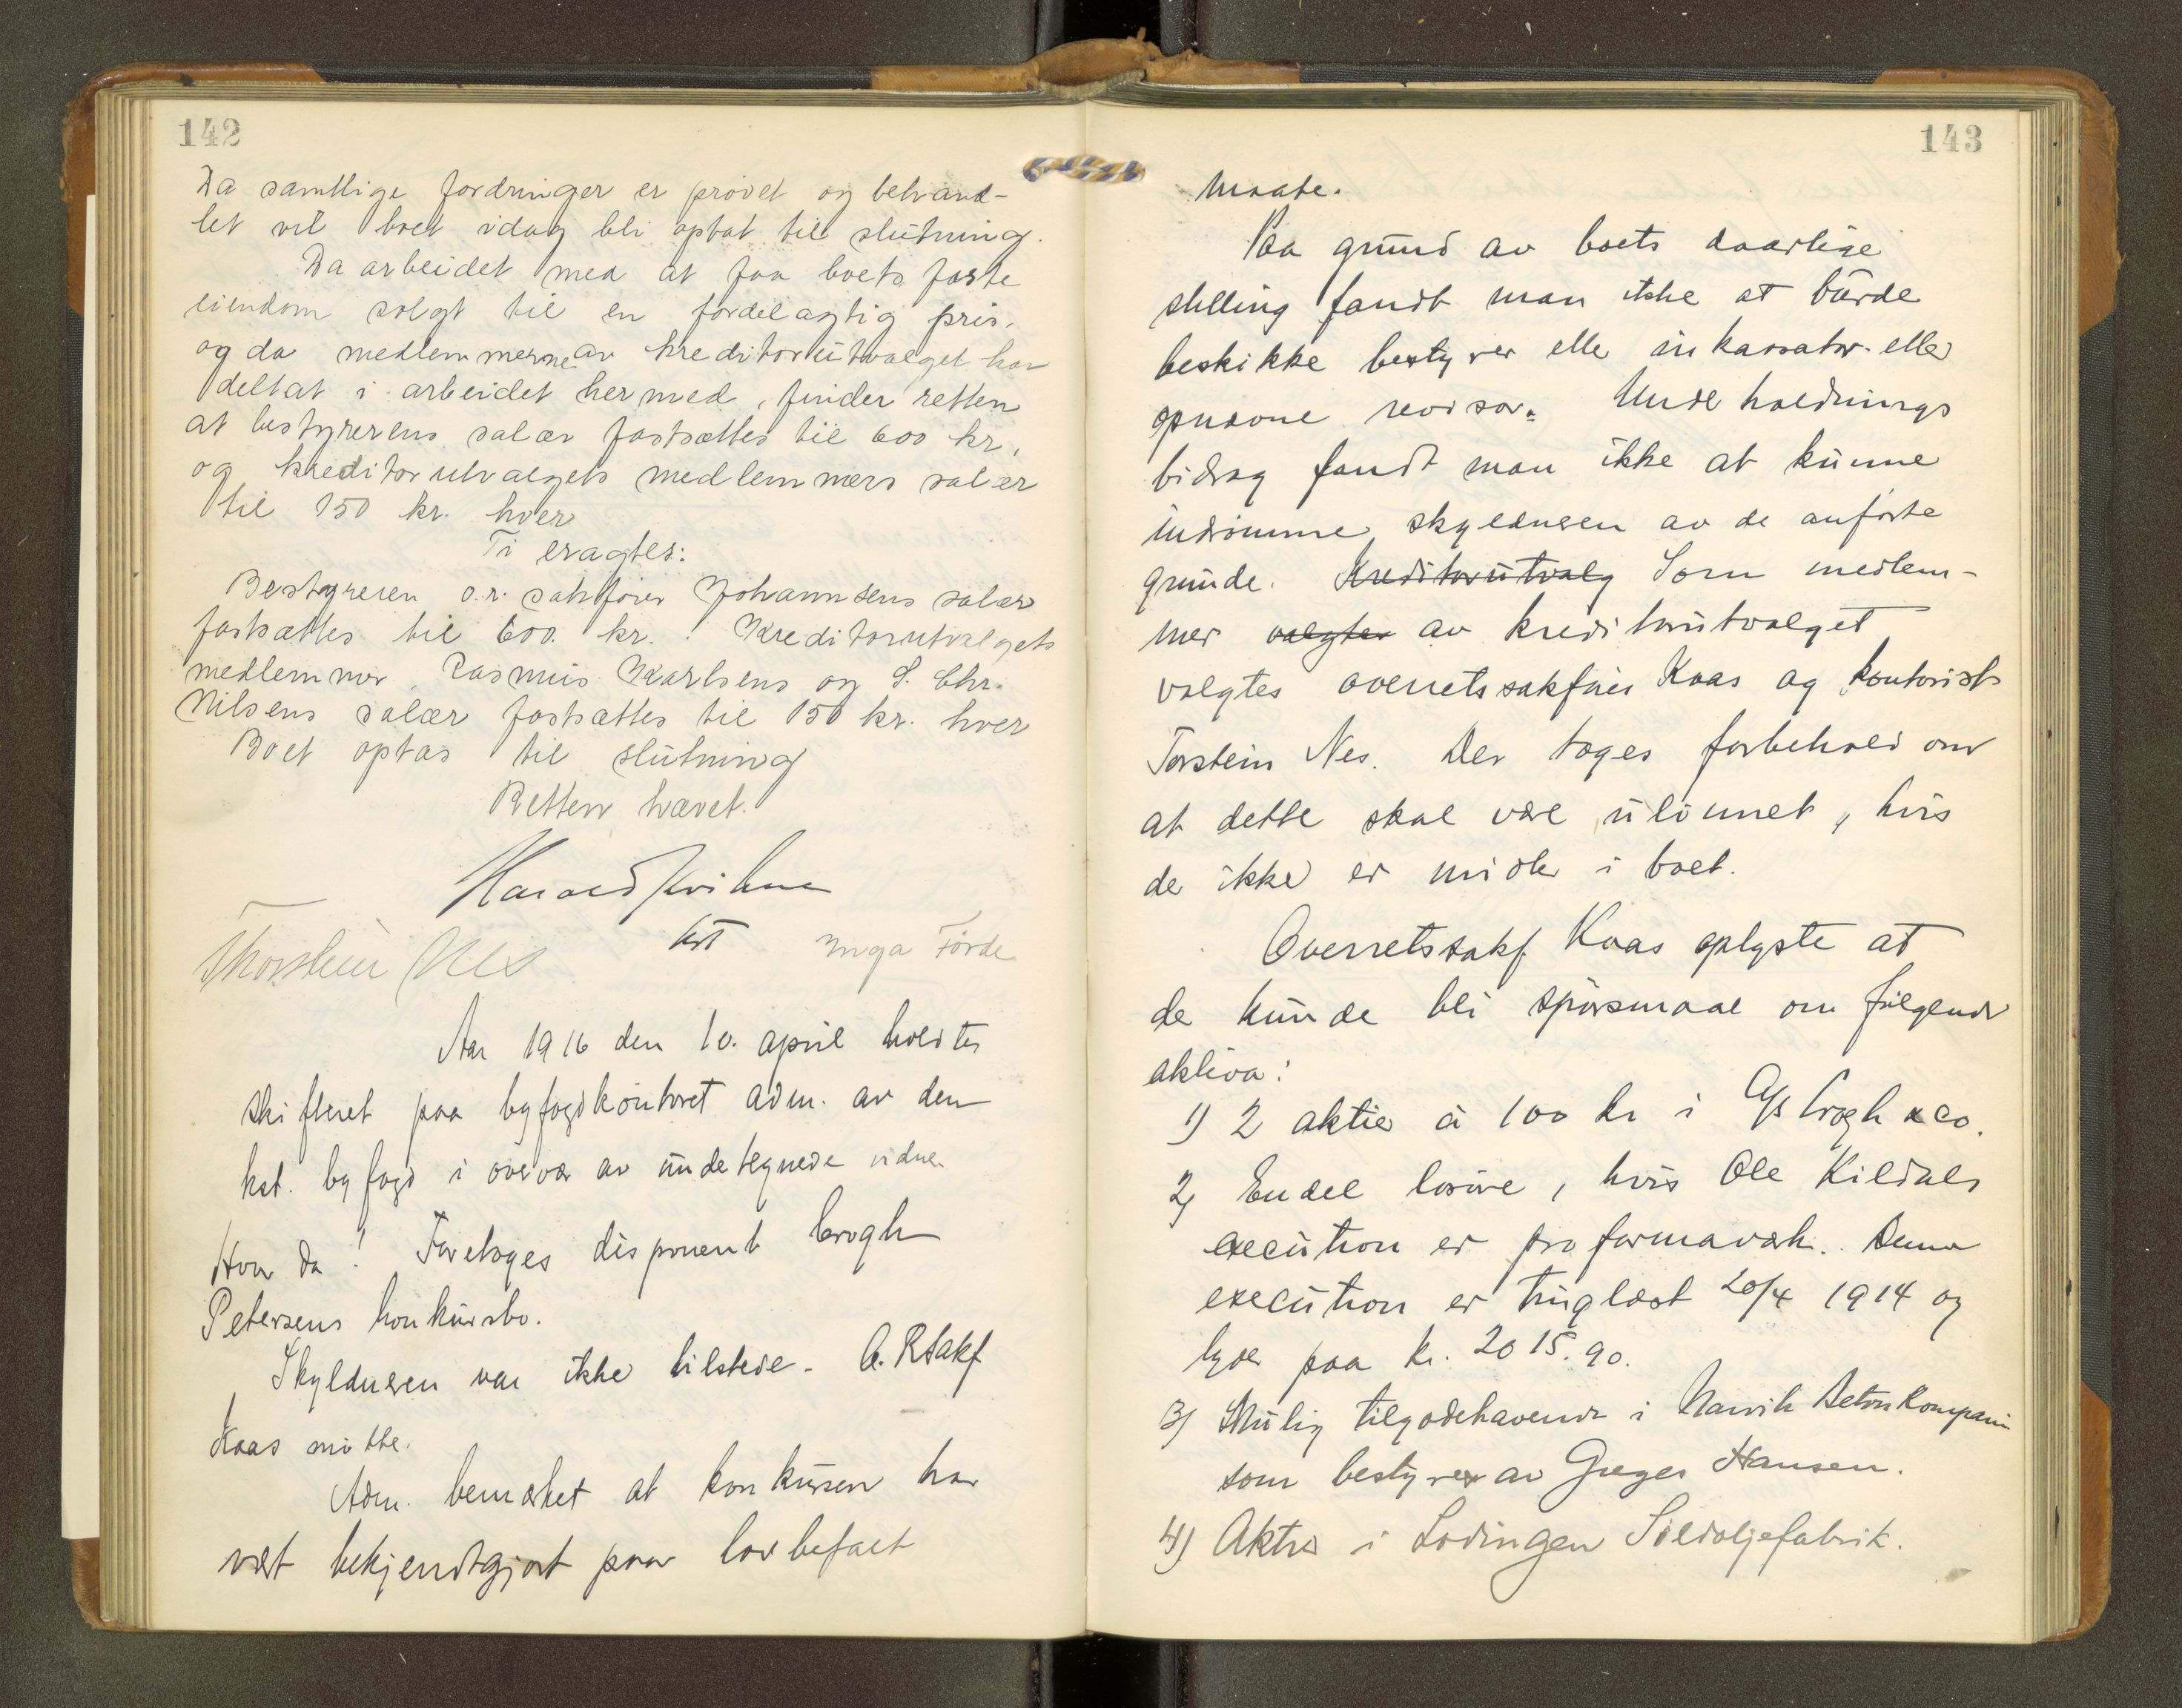 142
Da samtlige fordringer er prøvet og behand-
let vil boet idag bli optat til slutning.
Da arbeidet med at faa boets faste
eiendom solgt til en fordelagtig pris,
og da medlemmerne av kreditorutvalget har
deltat i arbeidet hermed, finder retten
at bestyrerens salær fastsættes til 600 kr,
og kreditorutvalgets medlemmers salær
til 150 kr. hver
Ti eragtes:
Bestyreren o.r. sakfører Johannsens salær
fastsættes til 600. kr. Kreditorutvalgets
medlemmer, Rasmus Karlsens og S. Chr.
Nilsens salær fastsættes til 150 kr. hver
Boet optas til slutning
Retten hævet.
Harald
kst
Thorstein Nes Inga Förde
Aar 1916 den 10. april holdtes
skifteret paa byfogdkontoret adm. av den
kst. byfogd i overvær av undetegnede vidner.
Hvor da! Foretoges disponent Crogh
Petersens konkursbo.
Skyldneren var ikke tilstede. O.R.sakf
Kaas møtte.
Adm. bemærket at konkursen har
vært bekjendtgjort paa lovbefalt
143
maate.
Paa grund av boets daarlige
stilling fandt man ikke at burde
beskikke bestyrer elle inkassator elle
opnævne revisor. Undeholdnings
bidrag fandt man ikke at kunne
indrömme skyldneren av de anförte
grunde. Kreditorutvalg Som medlem-
mer valgtes av kreditorutvalget
valgtes overretssakfører Kaas og kontorist
Torstein Nes. Der toges forbehold om
at dette skal være ulönnet, hvis
de ikke er midler i boet.
Overretssakf Kaas oplyste at
de kunde bli spörsmaal om fölgende
aktiva:
1) 2 aktier à 100 kr i A/S Crogh & co.
2) Endel lösöre, hvis Ole Kildals
execution er proformaværk. Denne
execution er tinglæst 20/4 1914 og
lyder paa kr. 2015.90.
3) Mulig tilgodehavende i Narvik Betonkompani
som bestyres av Greger Hansen.
4) Aktier i Lödingen Sildoljefabrik.